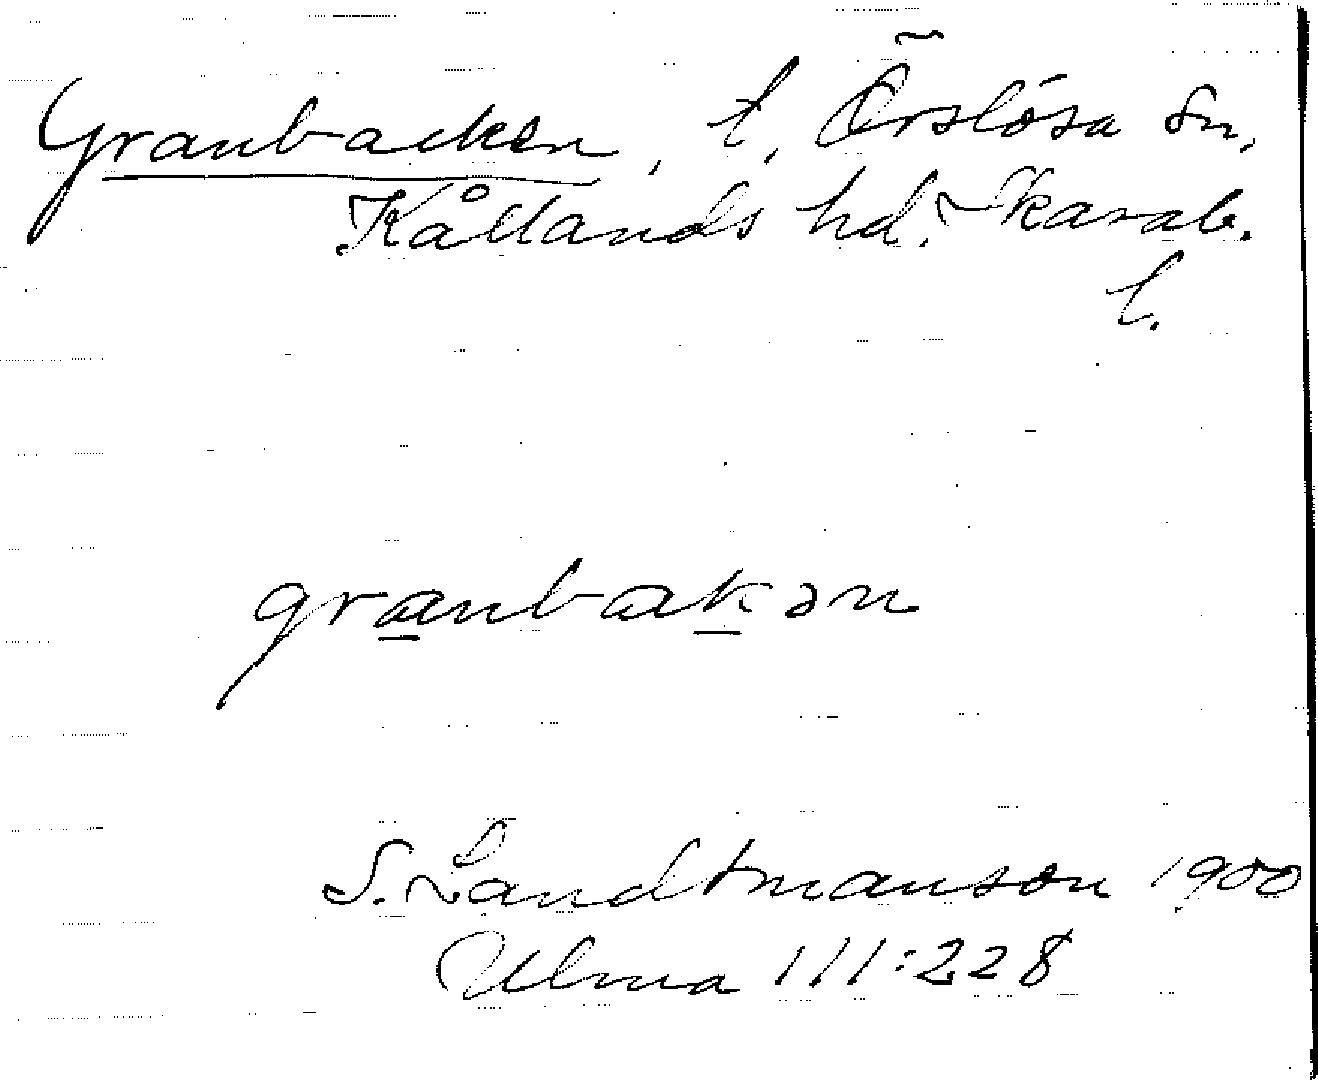 Granbacken, t, Örslösa sn,
Kållands hd. Skarab.
l.
granbakən
S. Landtmanson 1900
Ulma 111:228